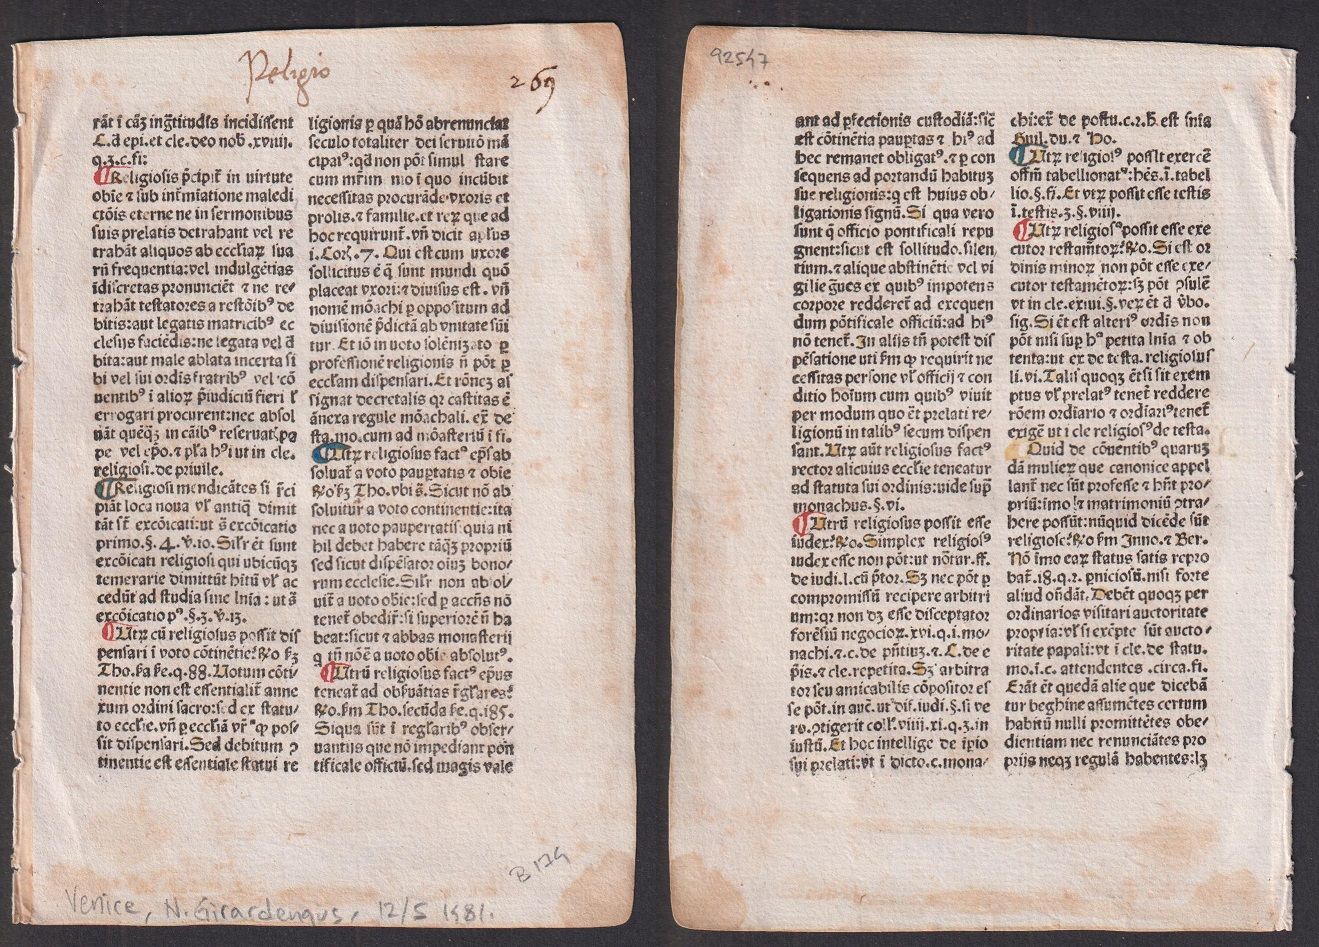 Religio
269
rāt ī cāz īgr̄titudīs īncidissent
C. d̄ epi. et cle. deo nob̄. xviij.
q. 3. c. fi:
¶ Religiosis p̄cipit̄ in uirtute
obiē ⁊ sub int̄mīatione maledi
ctōis eterne ne in sermonibus
suis prelatis detrahant vel re
trahāt aliquos ab eccliaꝝ sua
rū frequentia: vel indulgētias
īdiscretas pronunciēt ⁊ ne re⸗
trahāt testatores a restōib⁹ de
bitis: aut legatis matricib⁹ ec
clesijs faciēdis: ne legata vel d̄
bita: aut male ablata incerta si
bi vel sui ordīs fratrib⁹ vel cō
uentib⁹ ī alioꝝ p̄iudiciū fieri l̄
errogari procurent: nec absol
uāt quēqꝫ in cāib⁹ reseruat̄. pa
pe vel ep̄o. ⁊ pl̄ra h⁹i ut in cle.
religiosi. de priuile.
¶ Religiosi mendicātes si r̄ci
piāt loca noua vl̄ antiq̄ dimit
tāt st̄ excōicati: ut s̄ excōicatio
primo. §. 4. v̄. 10. Silr̄ ēt sunt
excōicati religiosi qui ubicūqꝫ
temerarie dimittūt hītū vl̄ ac
cedūt ad studia sine lnīa: ut s̄
excōicatio p⁹. §. 3. v̄. 13.
¶ Utꝝ cū religiosus possit dis
pensari ī voto cōtinētie? R̄o ẜꝫ
Tho. ẜa ẜe. q. 88. Uotum cōti⸗
nentie non est essentialit̄ anne
xum ordini sacro: sed ex statu⸗
to ecclie. vn̄ p ecclīā vr̄ q̄ pos⸗
sit dispensari. Sed debitum ↄ
tinentie est essentiale statui re
ligionis p quā hō abrenunciat
seculo totaliter dei seruitō mā
cipat⁹: qd̄ non pōt simul stare
cum mr̄im nio ī quo incūbit
necessitas procurāde vxoris et
prolis. ⁊ familie. et reꝝ que ad
hoc requirunt̄. vn̄ dicit ap̄lus
i. Corī. 7. Qui est cum uxore
sollicitus ē q̄ sunt mundi quō
placeat vxori: ⁊ diuisus est. vn̄
nomē mōachi p oppositum ad
diuisionē p̄dictā ab vnitate sūi
tur. Et iō in uoto solēnizato p
professionē religionis n̄ pōt p
eccl̄am dispensari. Et rōneꝫ as
signat decretalis qꝛ castitas ē
ānexa regule mōachali. ex̄ de
sta. mo. cum ad mōasteriū ī fi.
¶ Utꝝ religiosus fact⁹ ep̄s ab
soluat̄ a voto paup̄tatis ⁊ obie
R̄o ẜꝫ Tho. vbi s̄. Sicut nō ab
soluitur a voto continentie: ita
nec a uoto paupertatis: quia ni
hil debet habere tāqꝫ propriū
sed sicut dispēsator oiuꝫ bono⸗
rum ecclesie. Silr̄ non absol⸗
uit̄ a uoto obie: sed p accn̄s nō
tenet̄ obedir̄: si superiorē n̄ ha
beat: sicut ⁊ abbas monasterij
q tn̄ nōē a uoto obie absolut⁹.
¶ Utrū religiosus fact⁹ ep̄us
teneat̄ ad obẜuātias r̄gl̄ares?
R̄o. ẜm Tho. secūda ẜe. q. 185.
Siqua sūt ī reglarib⁹ obser⸗
uantijs que nō impediant pon̄
tificale officiū. sed magis vale
B 174
Venice, N. Girardengus, 12/5 1481.
92547
ant ad pfectionis custodiā: sic̄
est cōtinētia paup̄tas ⁊ hi⁹ ad
hec remanet obligat⁹. ⁊ p con
sequens ad portandū habituꝫ
sue religionis: q̄ est huius ob⸗
ligationis signū. Si qua vero
sunt q̄ officio pontificali repu
gnent: sicut est sollitudo. silen
tium. ⁊ alique abstinētie vel vi
gilie gues ex quib⁹ impotens
corpore redderet̄ ad exequen
dum pōtificale officiū: ad hi⁹
nō tenet̄. In alijs tn̄ potest dis
pēsatione uti ẜm q̄ requirit ne
cessitas persone vl̄ officij ⁊ con
ditio hoīum cum quib⁹ viuit
per modum quo ēt prelati re⸗
ligionū in talib⁹ secum dispen
sant. Utꝝ aūt religiosus fact⁹
rector alicuius ecclie teneatur
ad statuta sui ordinis: uide sup̄
monachus. §. vi.
¶ Utrū religiosus possit esse
iudex? R̄o. Simplex religios⁹
iudex esse non pōt: ut nōtur. ff.
de iudi. l. cū p̄tor. Sꝫ nec pōt p
compromissū recipere arbitri
um: qꝛ non dꝫ esse disceptator
forēsiū negocioꝝ. xvi. q. i. mo⸗
nachi. ⁊ c. de pn̄tiuꝫ. ⁊. C. de e
p̄is. ⁊ cle. repetita. Sꝫ arbitra
tor seu amicabilis cōpositor es
se pōt. in auē. ut dif. iudi. §. si ve
ro. ↄtigerit coll̄. viiij. xi. q. 3. in
iustū. Et hoc intellige de ip̄io
sui prelati: vt ī dicto. c. mona⸗
chi: ex̄ de postu. c. 2. ẜ. est sn̄ia
Guil. du. ⁊ Ho.
¶ Utꝝ religios⁹ possit exercē
offm̄ tabellionat⁹: hēs. ī. tabel
lio. §. fi. Et vtꝝ possit esse testis
ī. testis. 3. §. viiij.
¶ Utꝝ religios⁹ possit esse exe
cutor restam̄toꝝ? R̄o. Si est or
dinis minoꝝ non pōt esse exe⸗
cutor testamētoꝝ: sꝫ pōt ↄsulē
vt in cle. exiui. §. veꝝ ēt d̄ v̄bo.
sig. Si ēt est alteri⁹ ordīs non
pōt nisi sup̄ h⁹ petita lnīa ⁊ ob
tenta: ut ex de testa. religiosus
li. vi. Talis quoqꝫ ētsi sit exem
ptus vl̄ prelat⁹ tenet̄ reddere
rōem ordīario ⁊ ordīari⁹ tenet̄
exigē ut ī cle religios⁹ de testa.
Quid de cōuentib⁹ quaruꝫ
dā mulieꝝ que canonice appel
lant̄ nec sūt professe ⁊ hn̄t pro⸗
priū: imo ⁊ matrimoniū ↄtra⸗
here possūt: nūquid dicēde sūt
religiose? R̄o ẜm Inno. ⁊ Ber.
Nō īmo eaꝝ status satis repro
bat̄. 18. q. 2. pniciosū. nisi forte
aliud on̄dāt. Debēt quoqꝫ per
ordinarios visitari auctoritate
propria: vl̄ si exēpte sūt aucto⸗
ritate papali: vt ī cle. de statu.
mo. ī. c. attendentes. circa. fi.
Erāt ēt quedā alie que dicebā
tur beghine assumētes certum
habitū nulli promittētes obe⸗
dientiam nec renunciātes pro
prijs neqꝫ regulā habentes: lꝫ